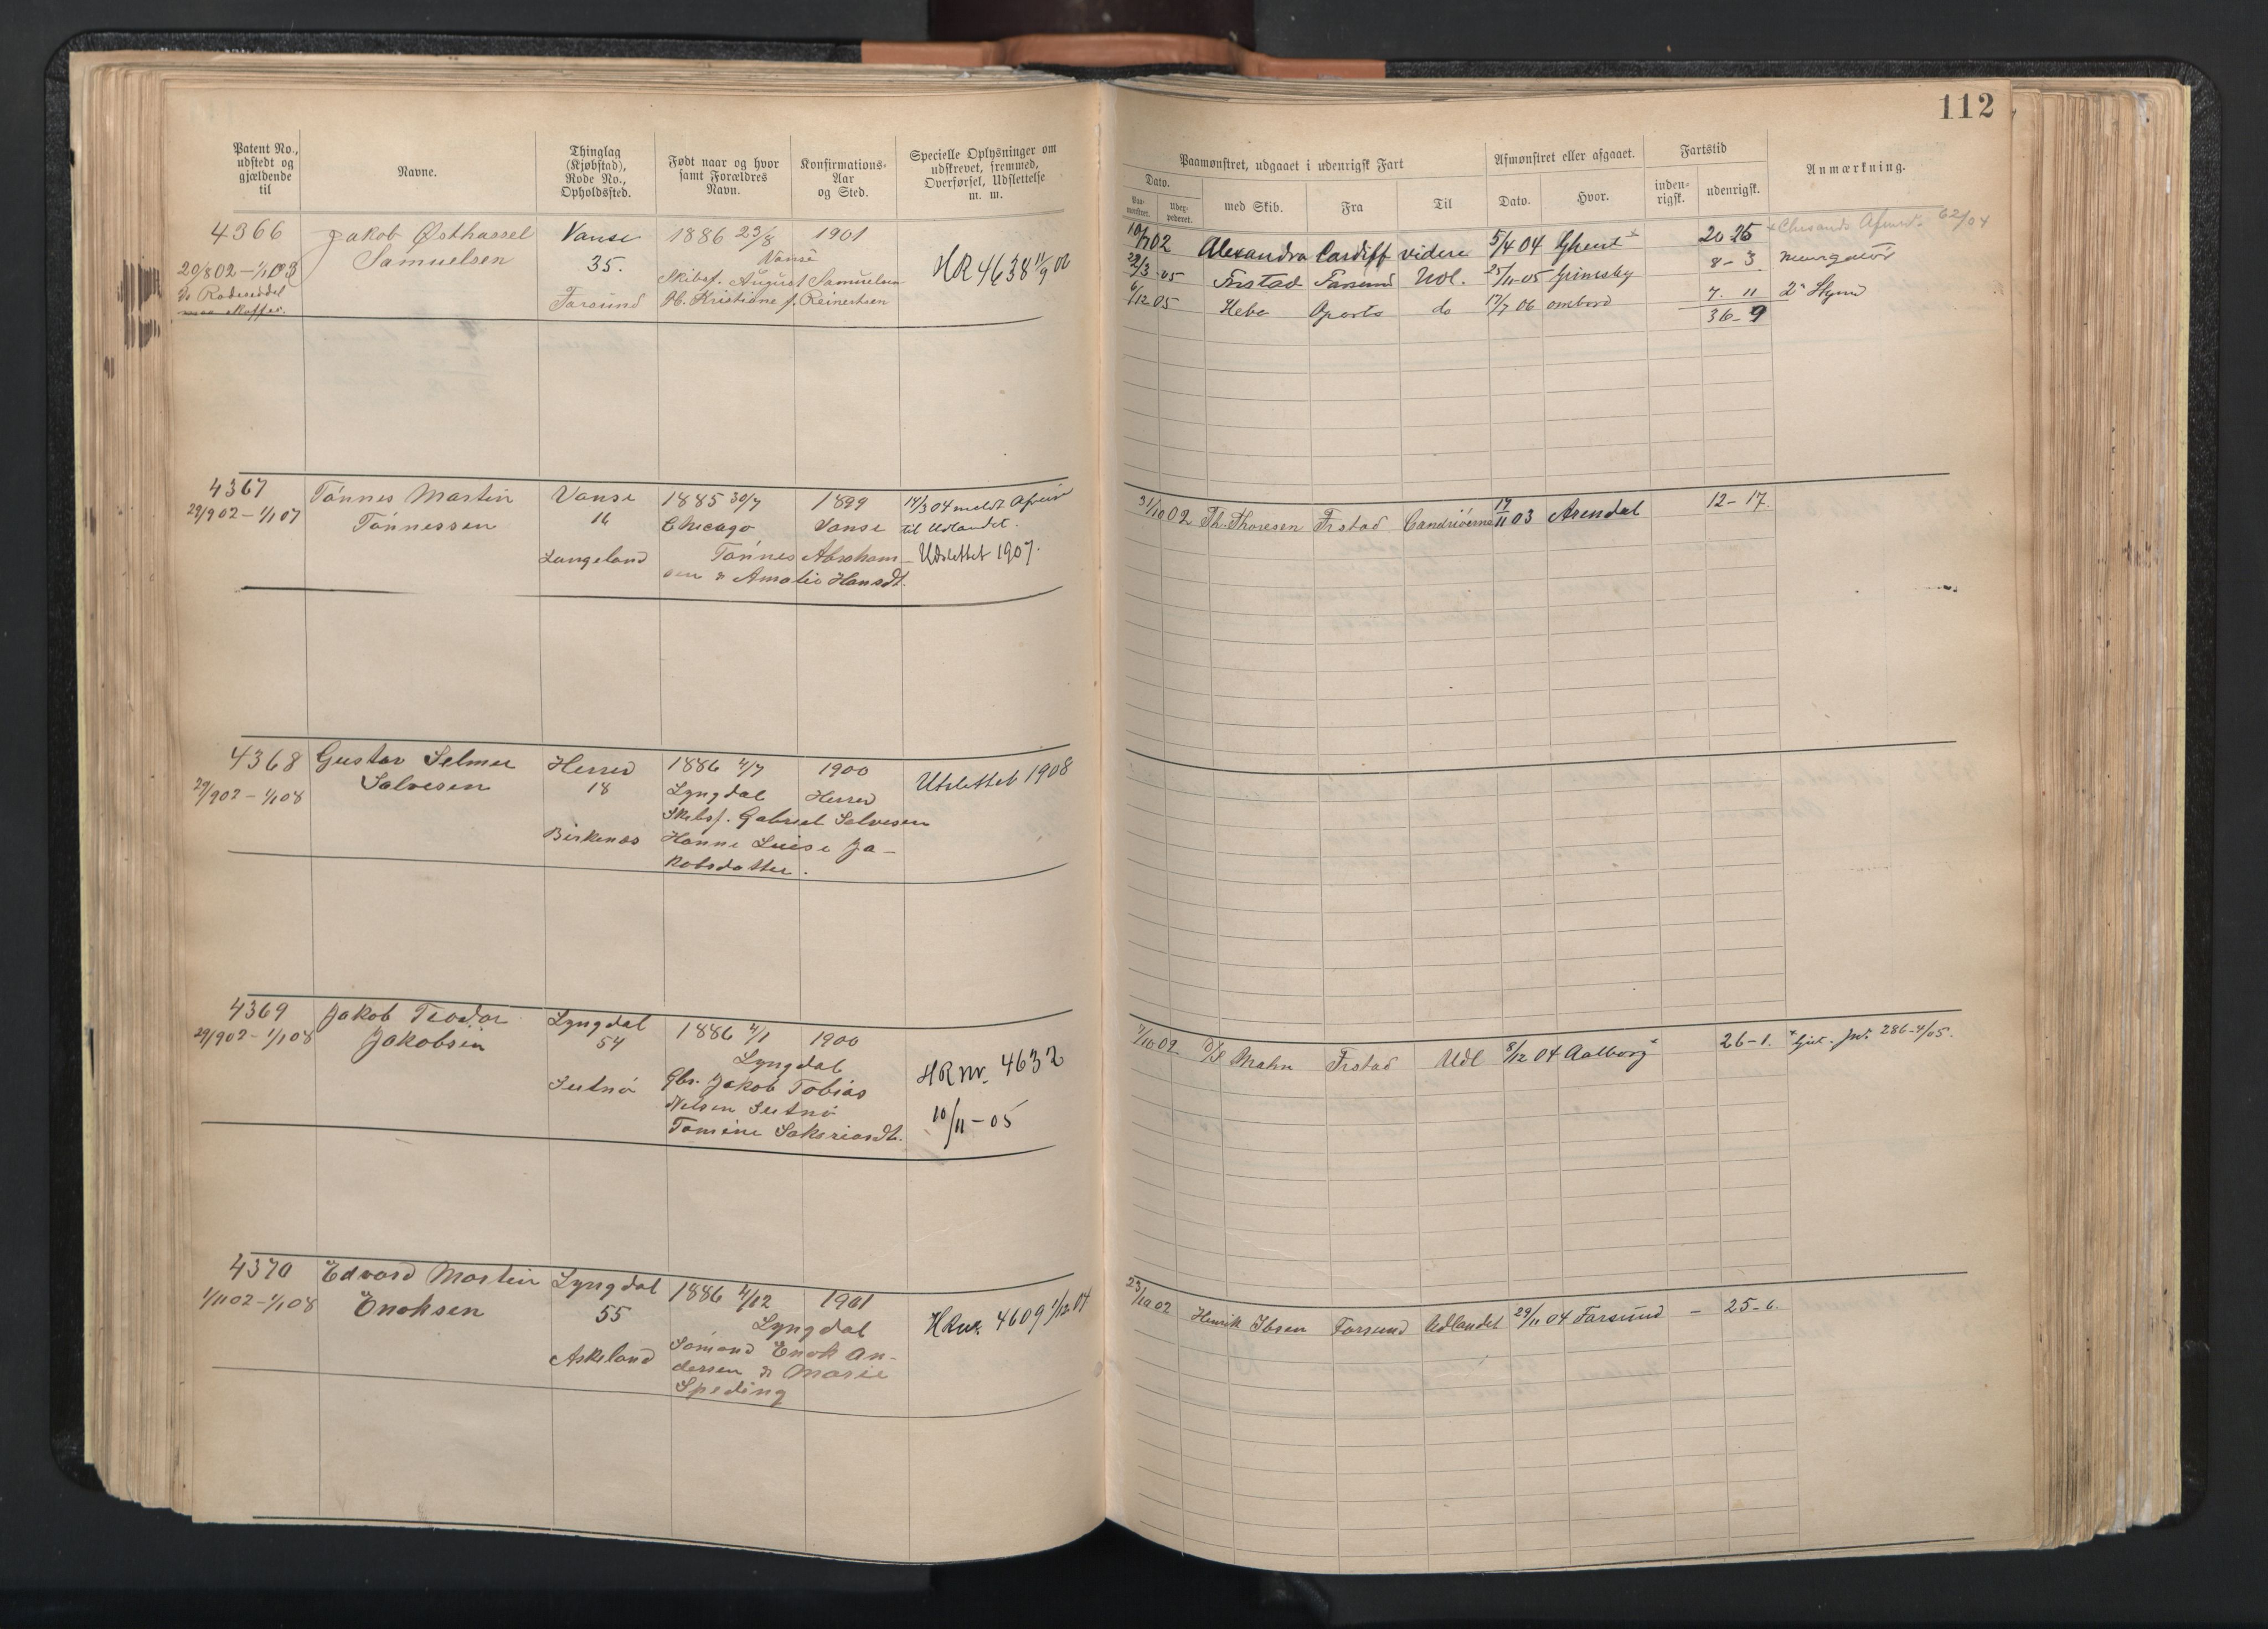 112
Patent No., udstedt og gjældende til
Navne.
Thinglag (Kjøbstad), Rode No., Opholdssted.
Født naar og hvor samt Forældres Navn.
Konfirmations-Aar og Sted.
Specielle Oplysninger om udskrevet, fremmed, Overførsel, Udslettelse m. m.
Paamønstret, udgaaet i udenrigsk Fart
Afmønstret eller afgaaet.
Fartstid
Anmærkning.
Dato.
Paa-mønstret.
Udex-pederet.
med Skib.
Fra
Til
Dato.
Hvor.
inden-rigsk.
udenrigsk.
4366
20/8 02 – 1/1 03
Rodeseddel
Jakob Østhassel
Samuelsen
Vanse
35.
Farsund
1886 23/8
1901
Vanse
Skibsf. August Samuelsen
Kristiane f. Reinertsen
HR 4638 11/9 06
10/7 02 Alexandra Cardiff videre 5/4 04 Ghent × 20 25
62/04
29/3 05 Frstad Farsund Udl. 25/11 05 Grimsby 8 – 3
6/12 05 Hebe Oporto do 17/7 06 ombord 7. 11 2n Styrmd
36 – 9
4367
29/9 02 – 1/1 07
Tønnes Martin
Tønnessen
Vanse
16
Langeland
1885 30/7
Chicago
1899
Vanse
Tønnes Abraham-
sen & Amalie Hansdt.
14/3 04 meldt Afreist
til Udlandet.
Udslettet 1907.
31/10 02 Th. Thoresen Frstad 17/11 03 Arendal 12 – 17.
4368
29/9 02 – 1/1 08
Gustav Selmer
Salvesen
Herred
18
Birkenes
1886 4/7
Lyngdal
1900
Herred
Skibsf. Gabriel Salvesen
Hanne Luise Ja-
kobsdatter.
Utslettet 1908
4369
29/9 02 – 1/1 08
Jakob Teodor
Jakobsen
Lyngdal
54
1886 4/1
1900
Lyngdal
Gbr. Jakob Tobias
Nelsen
Tomine Sakariasdt.
HR nr. 4632
10/11 – 05
7/10 02 D/S Frstad Udl 8/12 04 Aalborg × 26 – 1. 286 – 4/05.
4370
1/11 02 – 1/1 08
Edvard Martin
Enoksen
Lyngdal
55
Askeland
1886 4/12
1901
Lyngdal
Sømand Enok An-
dersen & Marie
Speding
HR nr. 4609 1/12 04
23/10 02 Henrik Ibsen Farsund Udlandet 29/11 04 Farsund – 25 – 6.